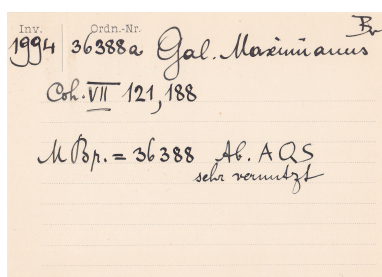 Inv. Ordn.-Nr.
1994 36388a Gal. Maximianus
Coh. VII 121, 188
MBr. = 36388 Ab. AQS
sehr vernutzt